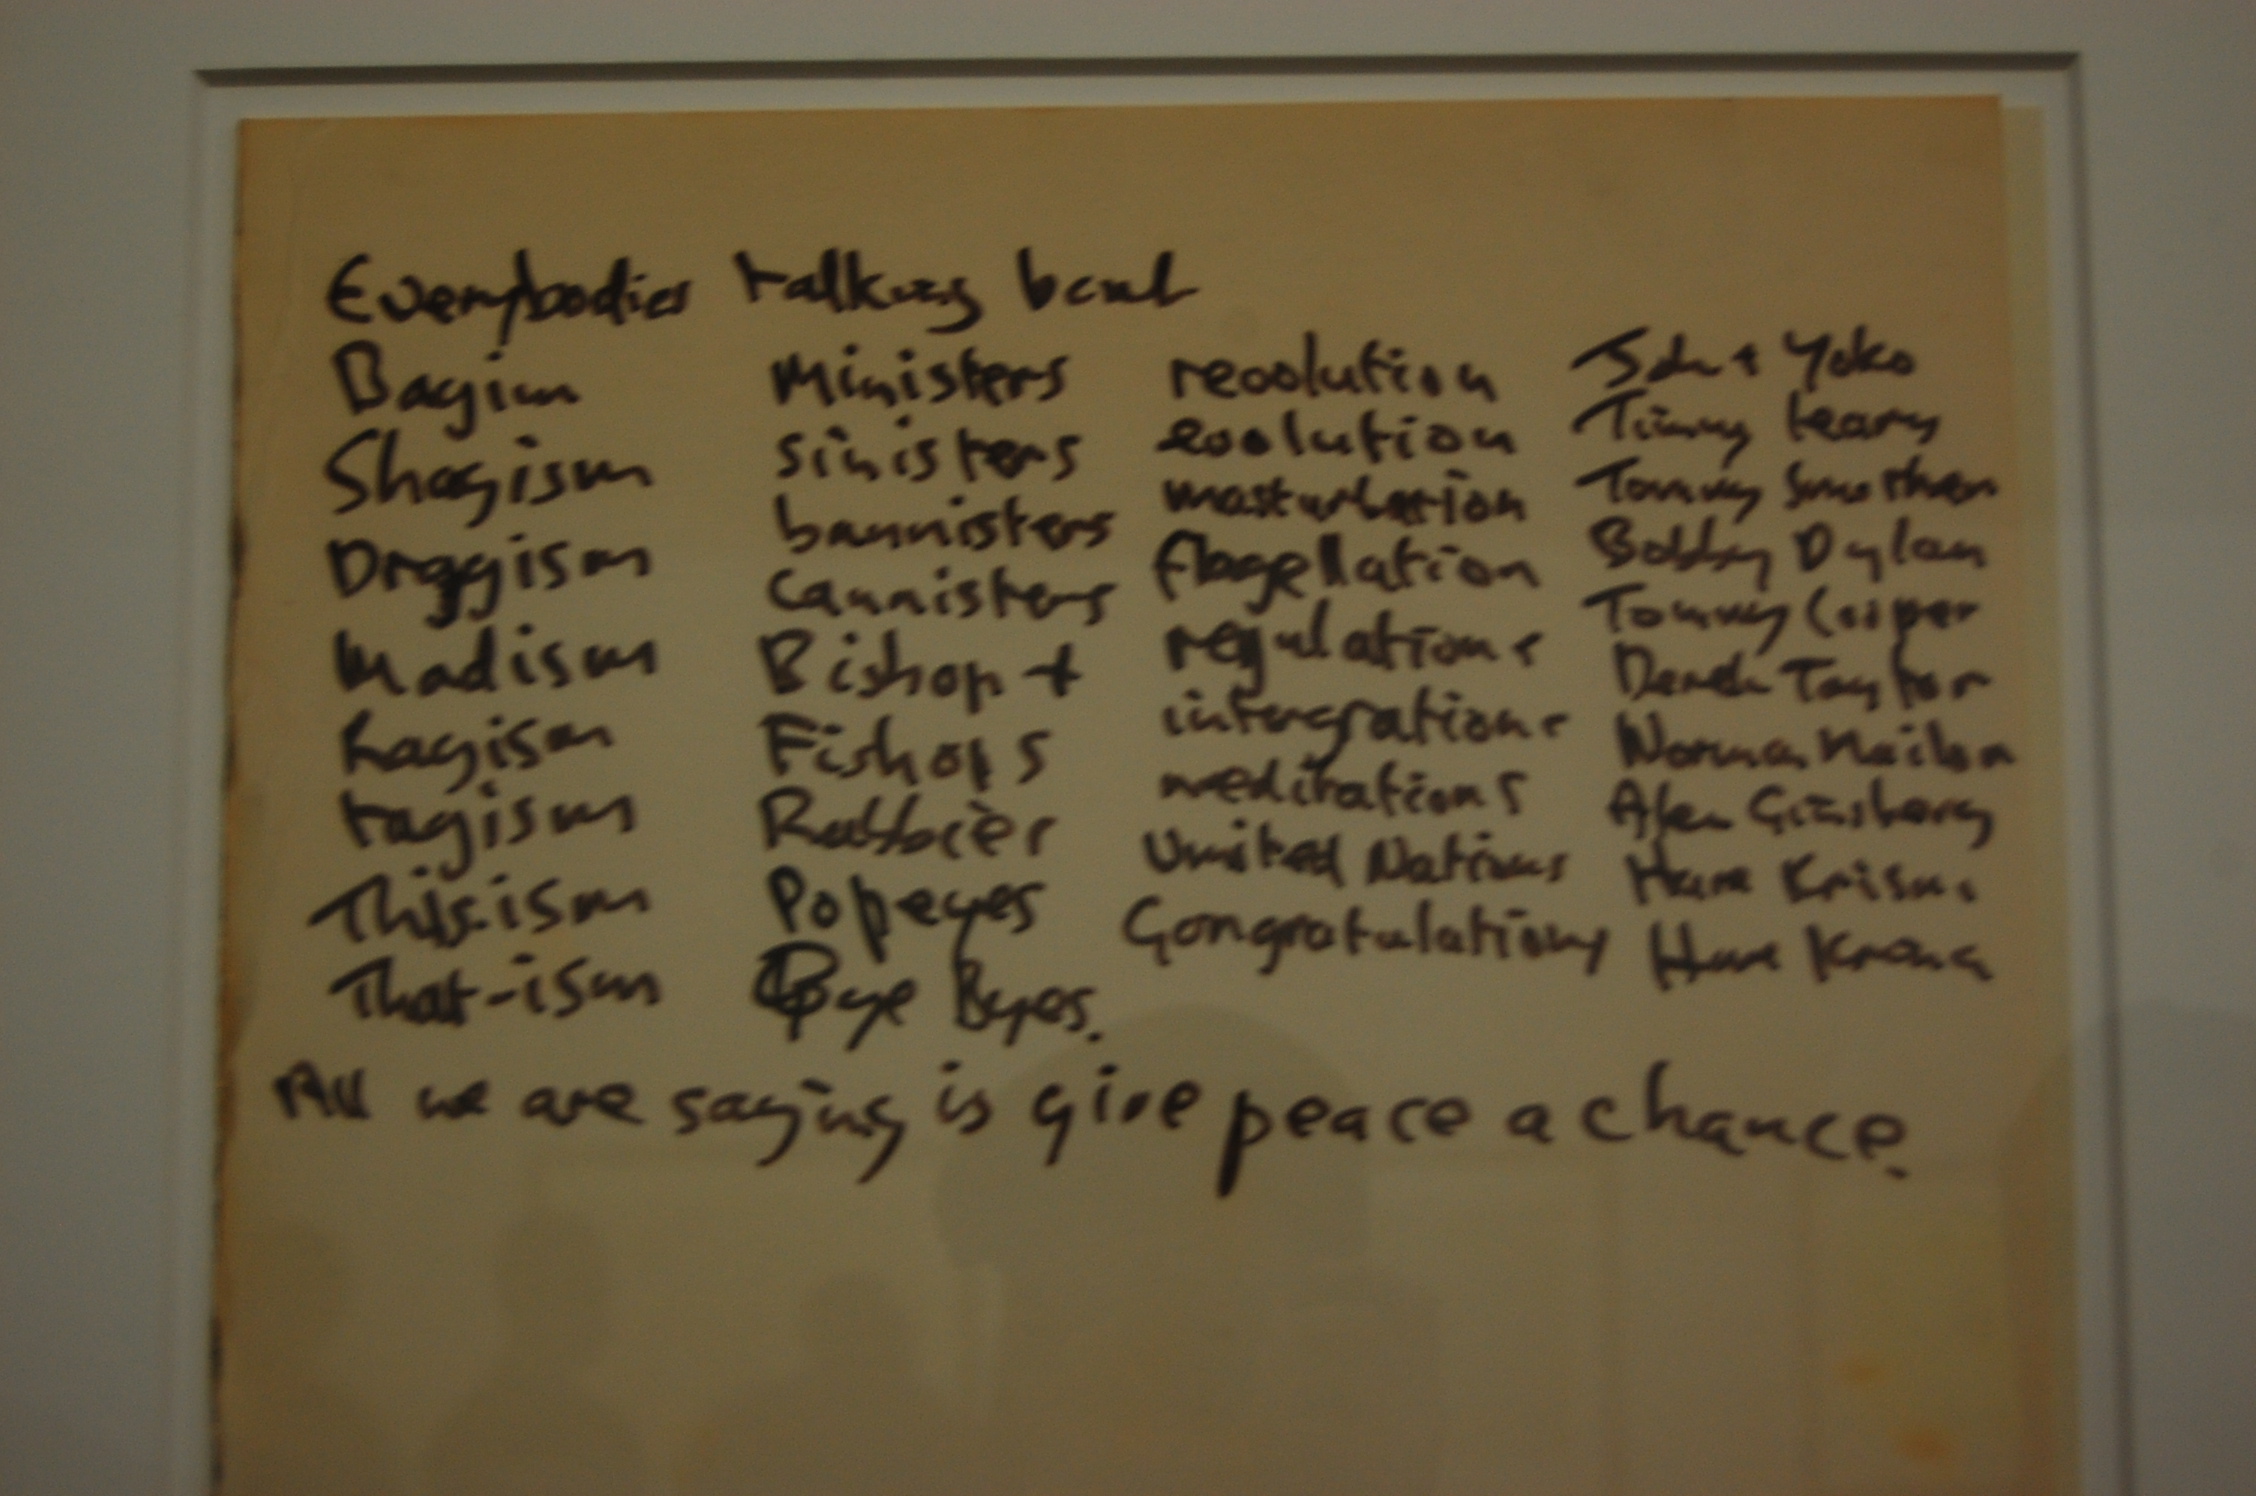 Everybodies talking bout
Bagism
Shagism
Draggism
Madism
Ragism
tagism
This-ism
That-ism
Ministers
sinisters
bannisters
cannisters
Bishop +
Fishops
Rabbier
Popeyes
Bye Byes.
revolution
evolution
masturbation
flagellation
regulations
intergrations
meditations
United Nations
Congratulations
John + Yoko
Timmy leary
Tommy Smothers
Bobby Dylan
Tommy Cooper
Derek Taylor
Norman Mailer
Alen Ginsberg
Hare Krisna
Hare Krsna
All we are saying is give peace a chance.